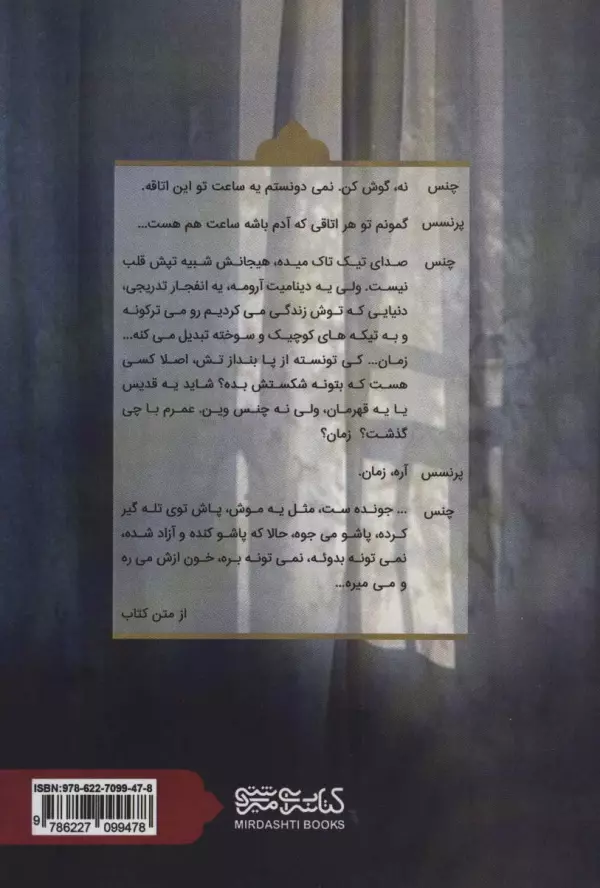 چنس نه، گوش کن. نمی دونستم یه ساعت تو این اتاقه.
پرنسس گمونم تو هر اتاقی که آدم باشه ساعت هم هست...
چنس صدای تیک تاک میده، هیجانش شبیه تپش قلب
نیست. ولی یه دینامیت آرومه، یه انفجار تدریجی،
دنیایی که توش زندگی می کردیم رو می ترکونه
و به تیکه های کوچیک و سوخته تبدیل می کنه...
زمان... کی تونسته از پا بنداز تش، اصلا کسی
هست که بتونه شکستش بده؟ شاید یه قدیس
یا یه قهرمان، ولی نه چنس وین. عمرم با چی
گذشت؟ زمان؟
پرنسس آره، زمان.
چنس ... جونده ست، مثل یه موش، پاش توی تله گیر
کرده، پاشو می جوه، حالا که پاشو کنده و آزاد شده،
نمی تونه بدوئه، نمی تونه بره، خون ازش می ره
و می میره...
از متن کتاب
ISBN:978-622-7099-47-8
9 786227 099478
کتابسرای میردشتی
MIRDASHTI BOOKS